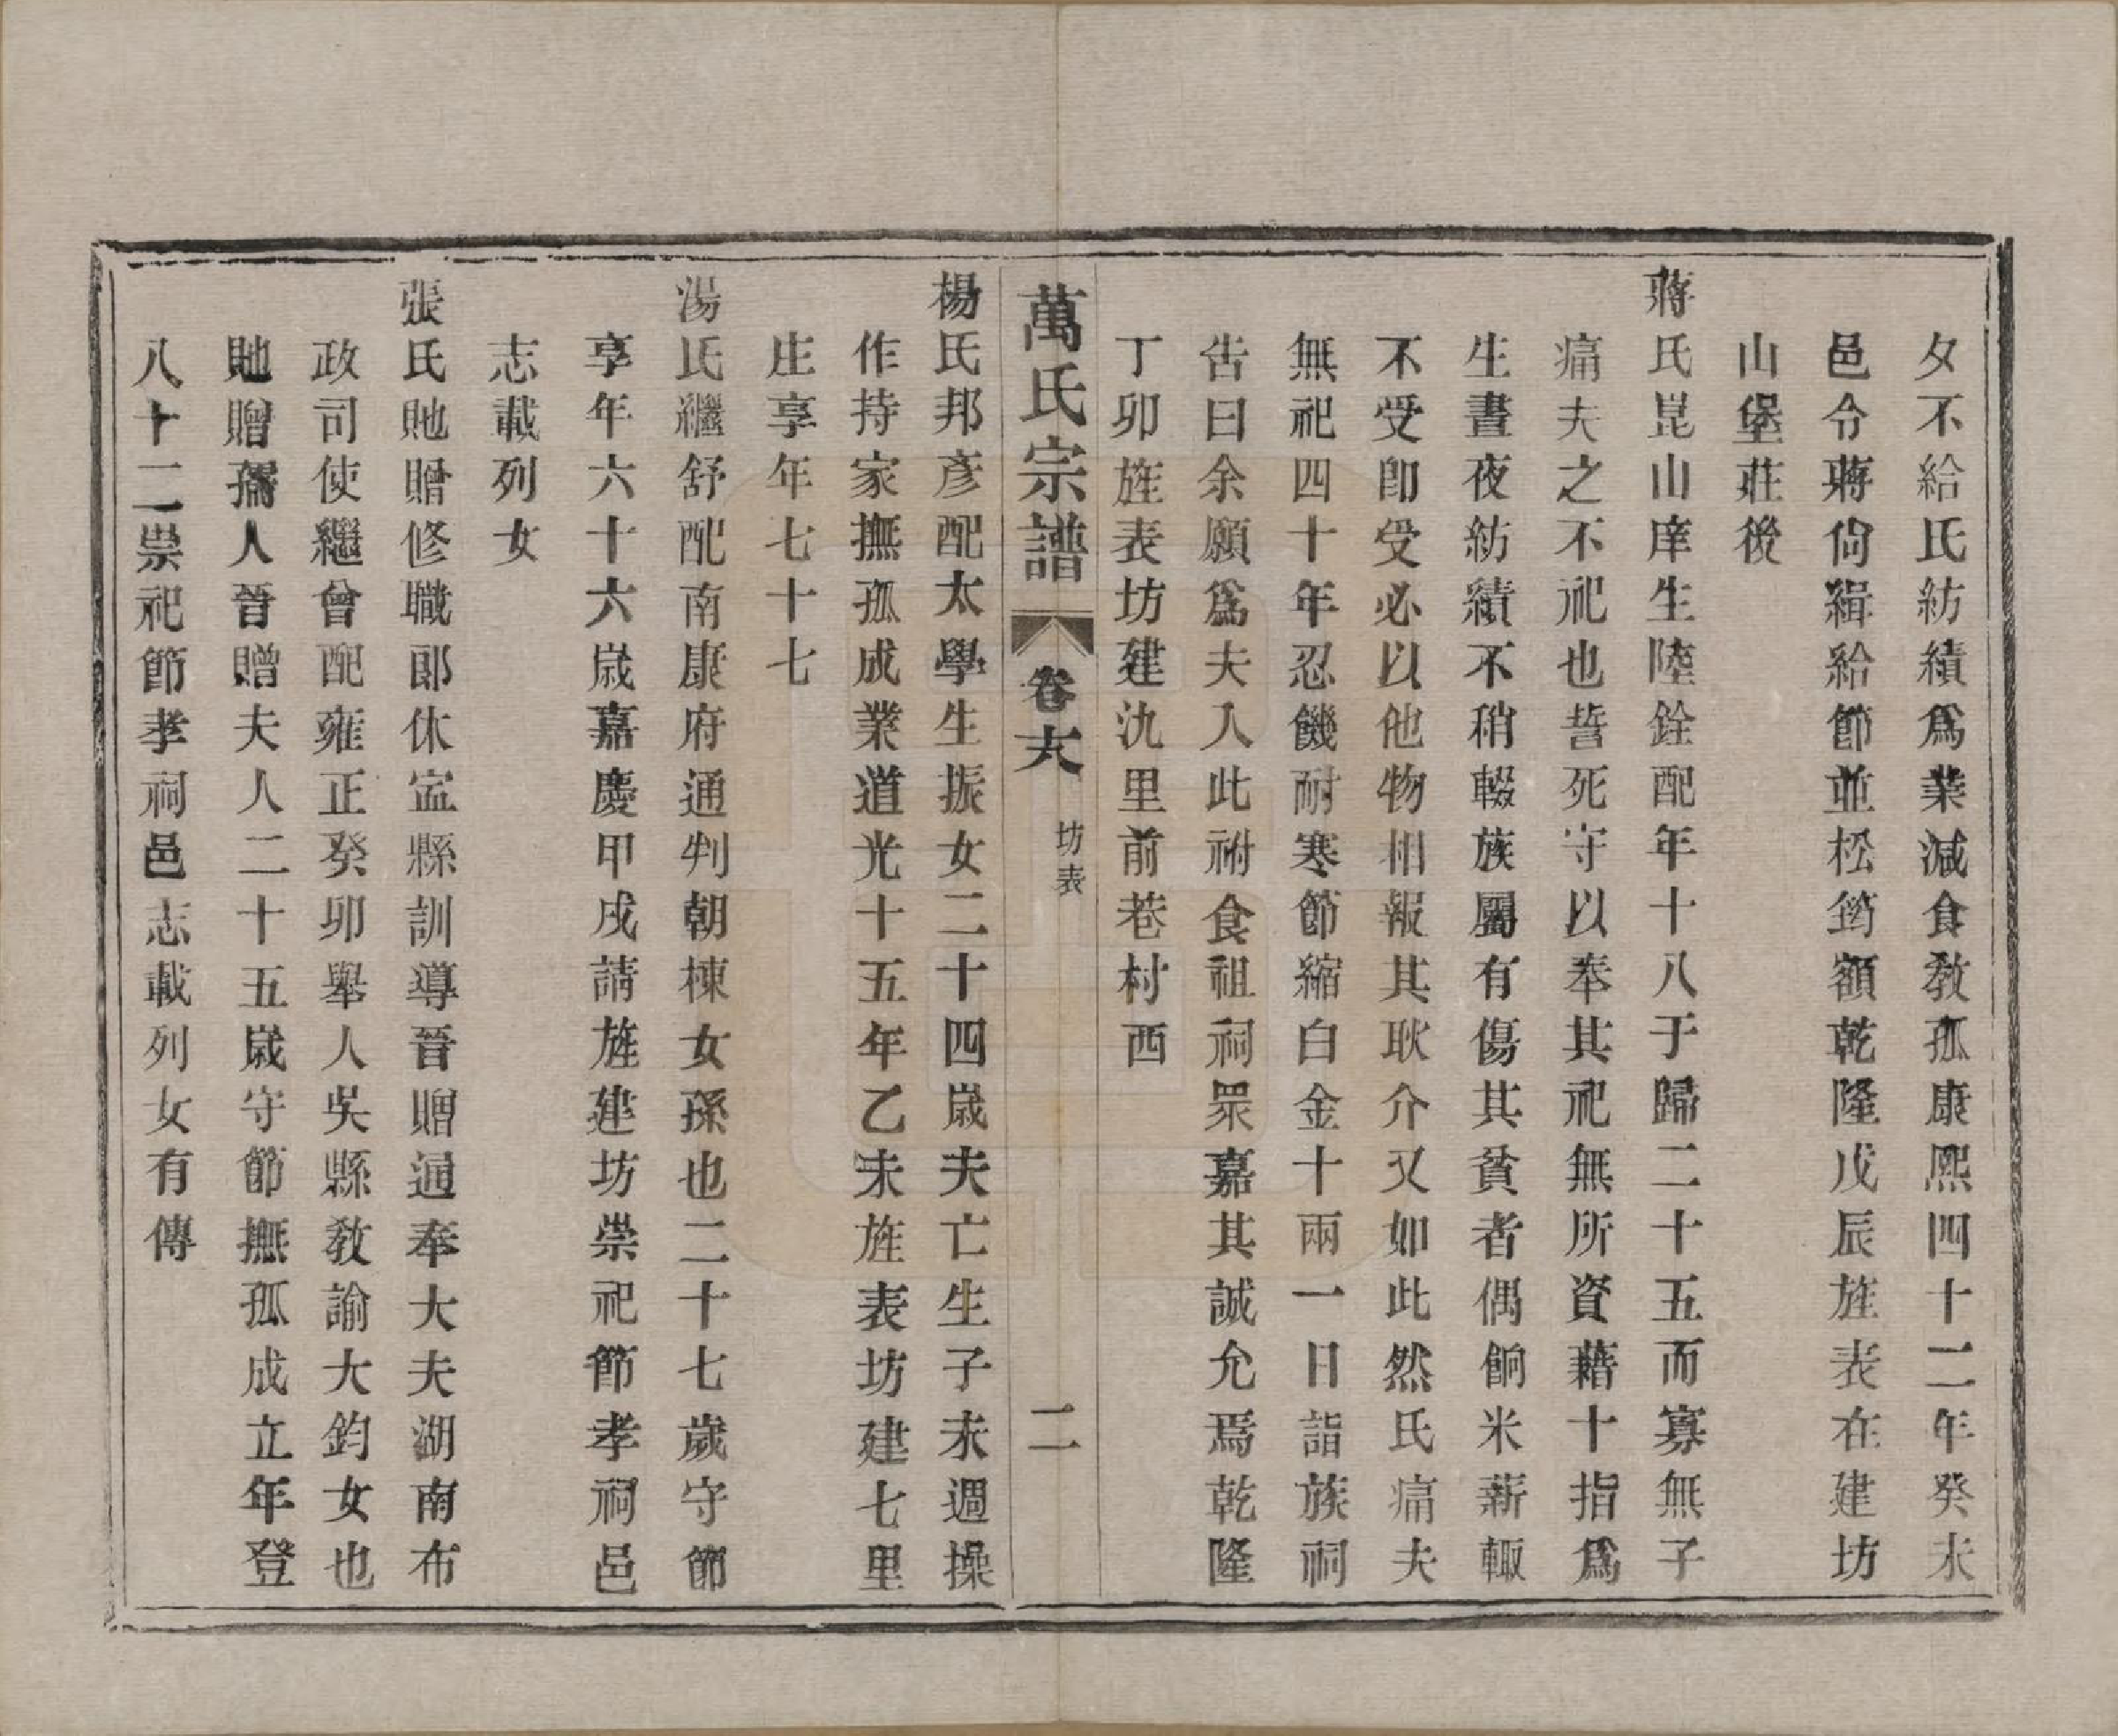 夕不給氏紡績爲業減食敎孤康熈四十二年癸未
邑令蔣尙緝給節並松筠額乾隆戊辰旌表在建坊
山堡莊後
蔣氏崑山庠生陸銓配年十八于歸二十五而寡無子
痛夫之不祀也誓死守以奉其祀無所資藉十指爲
生晝夜紡績不稍輟族屬有傷其貧者偶餉米薪輒
不受卽受必以他物相報其耿介又如此然氏痛夫
無祀四十年忍饑耐寒節縮白金十兩一日詣族祠
告曰余願爲夫入此祔食祖祠眾嘉其誠允焉乾隆
丁卯旌表坊建氿里前巷村西
萬氏宗譜 卷六 坊表 二
楊氏邦彥配太學生振女二十四歲夫亡生子未週操
作持家撫孤成業道光十五年乙未旌表坊建七里
庄享年七十七
湯氏繼舒配南康府通判朝棟女孫也二十七歲守節
享年六十六歲嘉慶甲戌請旌建坊崇祀節孝祠邑
志載列女
張氏貤贈修職郎休寍縣訓導晉贈通奉大夫湖南布
政司使繼曾配雍正癸卯舉人吳縣敎諭大鈞女也
貤贈孺人晉贈夫人二十五歲守節撫孤成立年登
八十二祟祀節孝祠邑志載列女有傳